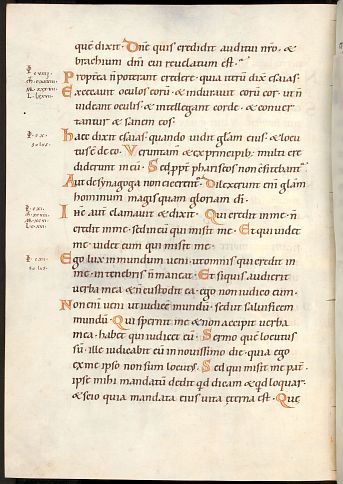 quē dixit · Dn̄e quis credidit auditui nr̄o · &
brachium dn̄i cui reuelatum est ·
Propt̄ea n̄ poterant credere · quia iterū dix̄ esaias ·
Excecauit oculos eorū · & indurauit eorū cor · ut n̄
uideant oculis · & intellegant corde · & conuer
tantur & sanem eos ·
haec dixit esaias · quando uidit gl̄am eius · & locu
tus ē de eo · Verumtam̄ & ex principib; multi cre
diderunt in eū · Sed ꝓpt̄ phariseos non cōfitebant̄
Aut de synagoga non eicerent̄ · Dilexerunt eni gl̄am
hominum magis quam gloriam dī ·
Ihc̄ aut̄ clamauit & dixit · Qui credit in me · n̄
credit in me · sed in eū qui misit me · Et qui uidet
me · uidet eum qui misit me ·
Ego lux in mundum ueni · ut omnis qui credit in
me · in tenebris n̄ maneat · Et si quis audierit
uerba mea · & n̄ custodit ea · ego non iudico eum ·
Non eni ueni ut iudicē mundū · sed ut saluificem
mundū · Qui spernit me & non accipit uerba
mea · habet qui iudicet eū · Sermo quē locutus
sū · ille iudicabit eū in nouissimo die · quia ego
ex me ipso non sum locutus · Sed qui misit me pat̄ ·
ipse mihi mandatū dedit qd̄ dicam & qd̄ loquar ·
& scio quia mandata eius uita ęterna est · Quę